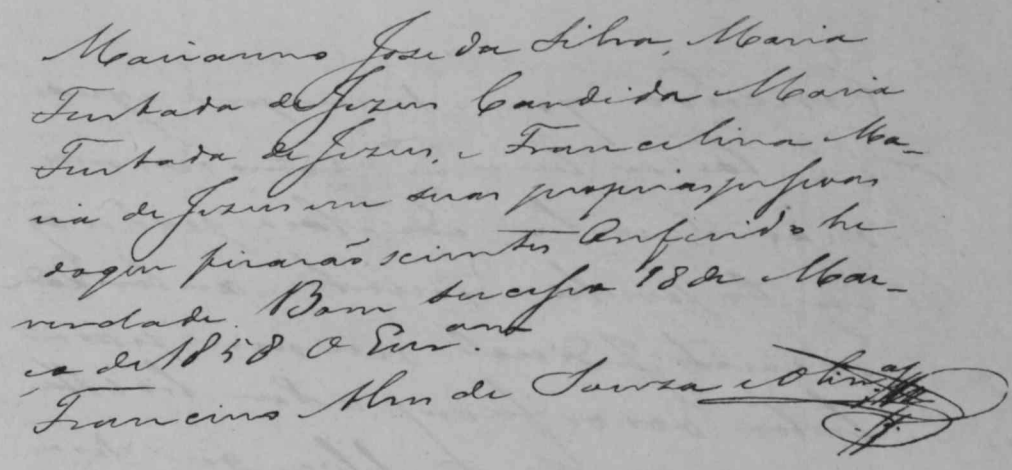 Marianno Jose da Silva, Maria
Furtada de Jezus Candida Maria
Furtada de Jezus, e Francelina Ma-
ria de Jezus em suas proprias pessoas
doque ficarão scientes Oreferido he
verdade. Bom sucesso 18 de Mar-
ço de 1858 O Escr.am
Francino Alvs de Souza e